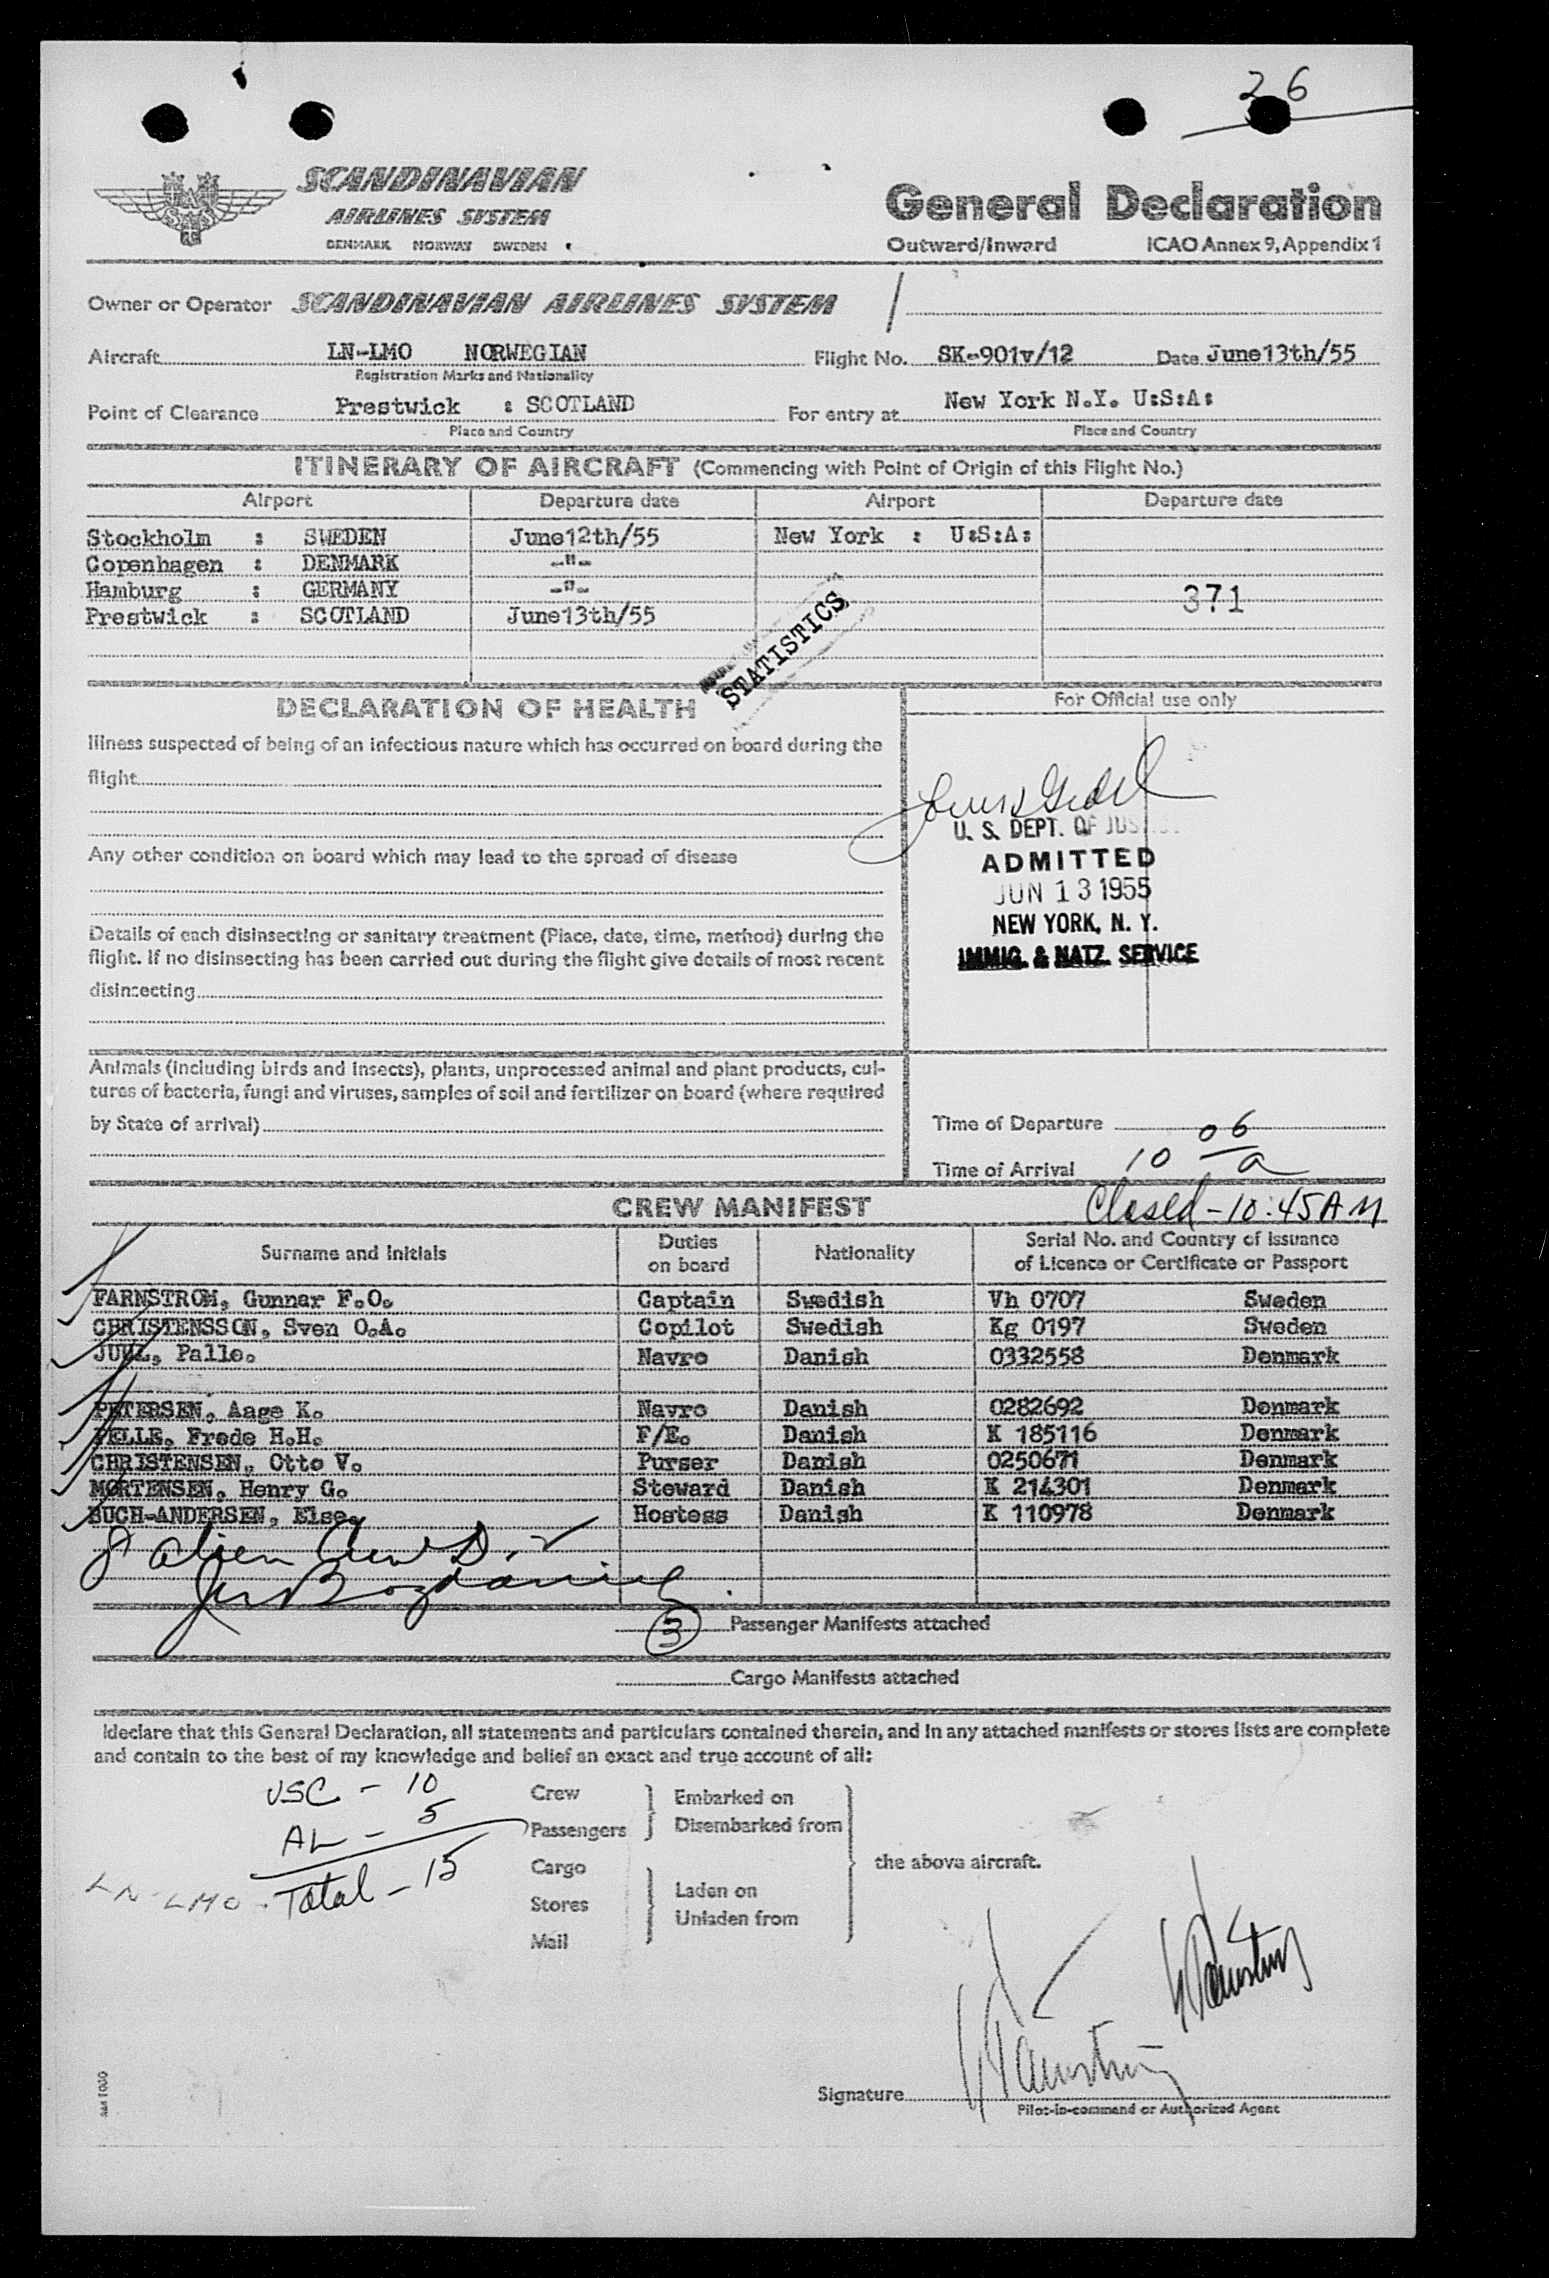 26
SCANDINAVIAN
AIRLINES SYSTEM
DENMARK NORWAY SWEDEN
General Declaration
Outward/Inward ICAO Annex 9, Appendix 1
Owner or Operator SCANDINAVIAN AIRLINES SYSTEM
Aircraft LN-LMO NORWEGIAN Flight No. SK-901v/12 Date June13th/55
Registration Marks and Nationality
Point of Clearance Prestwick : SCOTLAND For entry at New York N.Y. U:S:A:
Place and Country Place and Country
ITINERARY OF AIRCRAFT (Commencing with Point of Origin of this Flight No.)
Airport Departure date Airport Departure date
Stockholm : SWEDEN June12th/55 New York : U:S:A:
Copenhagen : DENMARK -"-
Hamburg : GERMANY -"- 371
Prestwick : SCOTLAND June13th/55
STATISTICS
DECLARATION OF HEALTH For Official use only
Illness suspected of being of an infectious nature which has occurred on board during the
flight
Any other condition on board which may lead to the spread of disease
U. S. DEPT. OF JUSTICE
ADMITTED
JUN 13 1955
NEW YORK, N. Y.
IMMIG. & NATZ. SERVICE
Details of each disinsecting or sanitary treatment (Place, date, time, method) during the
flight. If no disinsecting has been carried out during the flight give details of most recent
disinsecting
Animals (including birds and insects), plants, unprocessed animal and plant products, cul-
tures of bacteria, fungi and viruses, samples of soil and fertilizer on board (where required
by State of arrival)
Time of Departure
Time of Arrival 10 06 a
CREW MANIFEST Closed - 10:45 AM
Surname and Initials Duties on board Nationality Serial No. and Country of Issuance of Licence or Certificate or Passport
FARNSTROM, Gunnar F.O. Captain Swedish Vh 0707 Sweden
CHRISTENSSON, Sven O.A. Copilot Swedish Kg 0197 Sweden
JUUL, Palle. Navro Danish 0332558 Denmark
PETERSEN, Aage K. Navro Danish 0282692 Denmark
PELLE, Frede H.H. F/E. Danish K 185116 Denmark
CHRISTENSEN, Otto V. Purser Danish 0250671 Denmark
MORTENSEN, Henry G. Steward Danish K 214301 Denmark
BUCH-ANDERSEN, Else. Hostess Danish K 110978 Denmark
8 alien Crew
3 Passenger Manifests attached
Cargo Manifests attached
I declare that this General Declaration, all statements and particulars contained therein, and in any attached manifests or stores lists are complete
and contain to the best of my knowledge and belief an exact and true account of all:
USC - 10
AL - 5
Total - 15
LN-LMO
Crew Embarked on
Passengers Disembarked from
Cargo the above aircraft.
Stores Laden on
Unladen from
Mail
Signature
Pilot-in-command or Authorized Agent